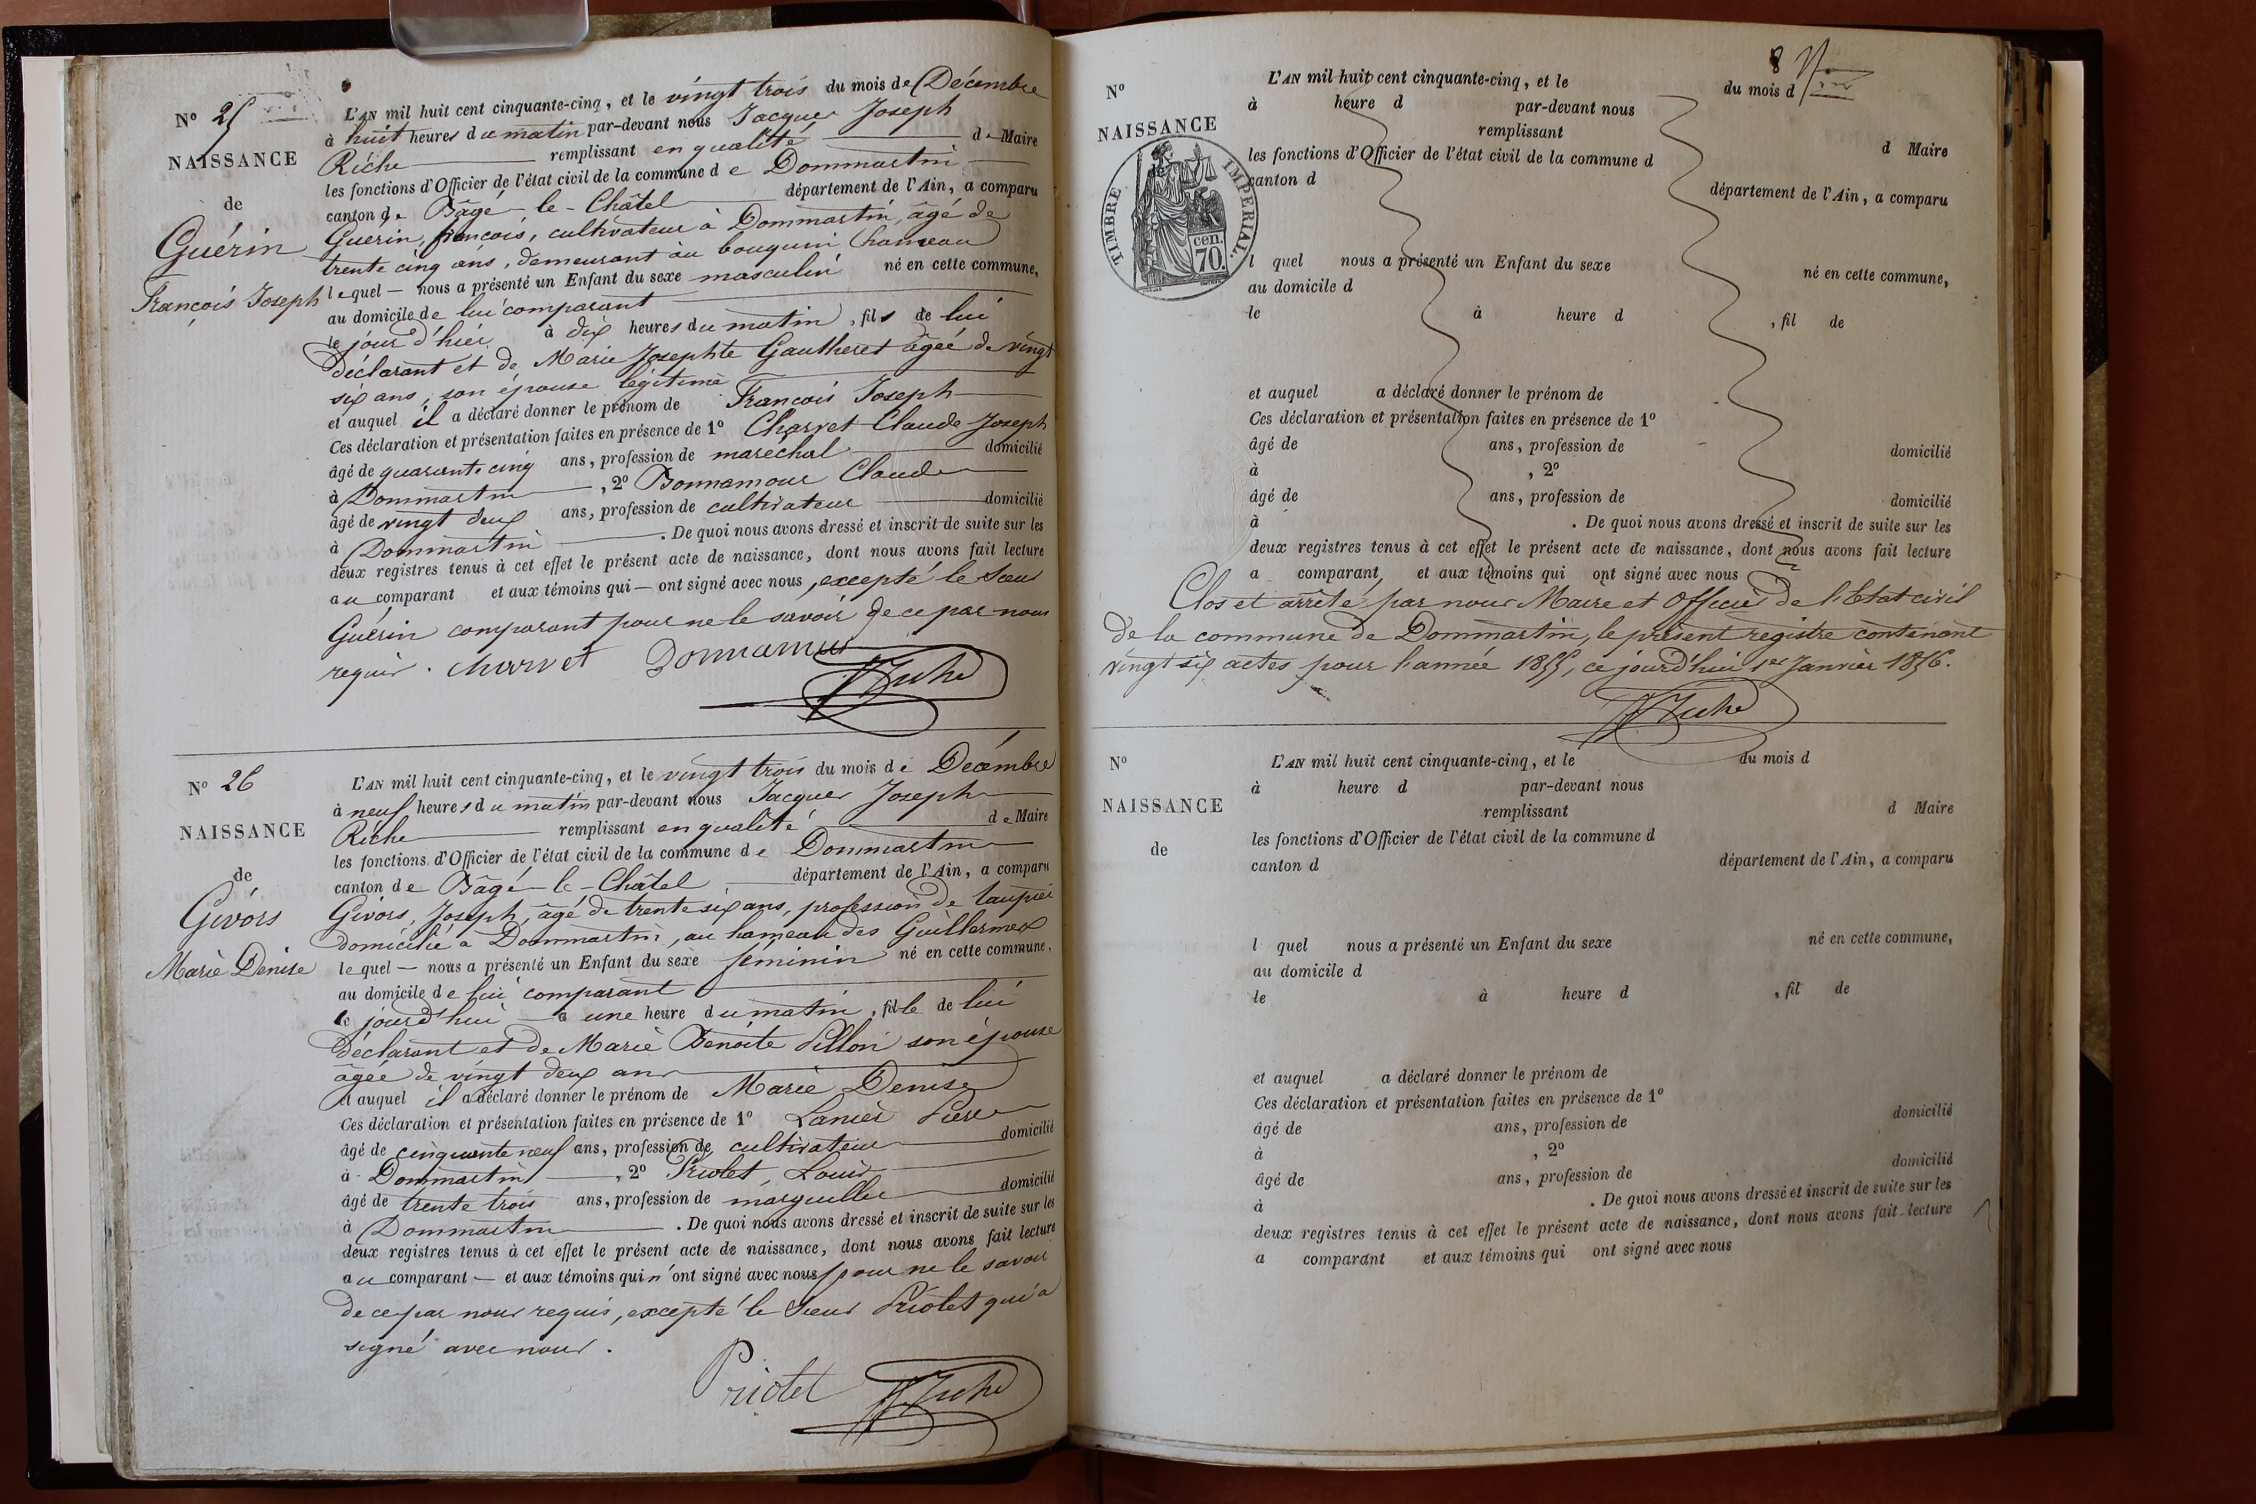 N° 25
NAISSANCE
de
Guérin
François Joseph
L'AN mil huit cent cinquante-cinq, et le vingt trois du mois de Décembre
à huit heures du matin par-devant nous Jacques Joseph
Riche remplissant en qualité de Maire
les fonctions d'Officier de l'état civil de la commune de Dommartin
canton de Bâgé-le-Châtel département de l'Ain, a comparu
Guérin, françois, cultivateur à Dommartin, âgé de
trente cinq ans, demeurant au bouquin hameau
lequel — nous a présenté un Enfant du sexe masculin né en cette commune,
au domicile de lui comparant
le jour d'hier à dix heures du matin, fils de lui
déclarant et de Marie Josephte Gautheret âgée de vingt
six ans, son épouse légitime
et auquel il a déclaré donner le prénom de François Joseph
Ces déclaration et présentation faites en présence de 1° Charvet Claude Joseph
âgé de quarante cinq ans, profession de maréchal domicilié
à Dommartin, 2° Bonnamour Claude
âgé de vingt deux ans, profession de cultivateur domicilié
à Dommartin. De quoi nous avons dressé et inscrit de suite sur les
deux registres tenus à cet effet le présent acte de naissance, dont nous avons fait lecture
au comparant et aux témoins qui — ont signé avec nous, excepté le Sieur
Guérin comparant pour ne le savoir de ce par nous
requis. Charvet Bonnamour
JJ Riche
N° 26
NAISSANCE
de
Givors
Marie Denise
L'AN mil huit cent cinquante-cinq, et le vingt trois du mois de Décembre
à neuf heures du matin par-devant nous Jacques Joseph
Riche remplissant en qualité de Maire
les fonctions d'Officier de l'état civil de la commune de Dommartin
canton de Bâgé-le-Châtel département de l'Ain, a comparu
Givors, Joseph, âgé de trente six ans, profession de taupier
domicilié à Dommartin, au hameau des Guillermex
lequel — nous a présenté un Enfant du sexe féminin né en cette commune,
au domicile de lui comparant
le jourd'hui à une heure du matin, fille de lui
déclarant et de Marie Benoîte Pillon son épouse
âgée de vingt deux ans
et auquel il a déclaré donner le prénom de Marie Denise
Ces déclaration et présentation faites en présence de 1° Lanier Pierre
âgé de cinquante neuf ans, profession de cultivateur domicilié
à Dommartin, 2° Priolet, Louis
âgé de trente trois ans, profession de marguillier domicilié
à Dommartin. De quoi nous avons dressé et inscrit de suite sur les
deux registres tenus à cet effet le présent acte de naissance, dont nous avons fait lecture
au comparant — et aux témoins qui n'ont signé avec nous pour ne le savoir
de ce par nous requis, excepté le Sieur Priolet qui a
signé avec nous.
Priolet JJ Riche
8
N°
NAISSANCE
TIMBRE IMPERIAL.
cen.
70.
L'AN mil huit cent cinquante-cinq, et le du mois d
à heure d par-devant nous
remplissant d Maire
les fonctions d'Officier de l'état civil de la commune d
canton d département de l'Ain, a comparu
l quel nous a présenté un Enfant du sexe né en cette commune,
au domicile d
le à heure d , fil de
et auquel a déclaré donner le prénom de
Ces déclaration et présentation faites en présence de 1°
âgé de ans, profession de domicilié
à , 2°
âgé de ans, profession de domicilié
à . De quoi nous avons dressé et inscrit de suite sur les
deux registres tenus à cet effet le présent acte de naissance, dont nous avons fait lecture
a comparant et aux témoins qui ont signé avec nous
Clos et arrêté par nous Maire et Officier de l'Etat civil
de la commune de Dommartin, le présent registre contenant
vingt six actes pour l'année 1855, ce jourd'hui 1er Janvier 1856.
JJ Riche
N°
NAISSANCE
de
L'AN mil huit cent cinquante-cinq, et le du mois d
à heure d par-devant nous
remplissant d Maire
les fonctions d'Officier de l'état civil de la commune d
canton d département de l'Ain, a comparu
l quel nous a présenté un Enfant du sexe né en cette commune,
au domicile d
le à heure d , fil de
et auquel a déclaré donner le prénom de
Ces déclaration et présentation faites en présence de 1°
âgé de ans, profession de domicilié
à , 2°
âgé de ans, profession de domicilié
à . De quoi nous avons dressé et inscrit de suite sur les
deux registres tenus à cet effet le présent acte de naissance, dont nous avons fait lecture
a comparant et aux témoins qui ont signé avec nous